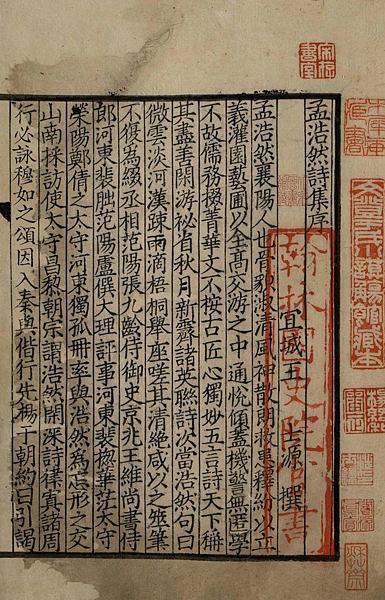 孟浩然詩集序
宜城王士源撰
孟浩然襄陽人也骨貌淑清風神散朗救患釋紛以立
義灌園藝圃以全高交游之中通悅傾蓋機警無匿學
不故儒務掇菁華文不按古匠心獨妙五言詩天下稱
其盡善閑游祕省秋月新霽諸英聯詩次當浩然句曰
微雲淡河漢疎雨滴梧桐舉座嗟其清絶咸以之筆
不復為綴丞相范陽張九齡侍御史京兆王維尚書侍
郎河東裴朏范陽盧僎大理評事河東裴揔華茫太守
滎陽鄭倩之太守河東獨孤冊率與浩然為忘形之交
山南採訪使太守昌黎朝宗謂浩然閒深詩律寘諸周
行必詠穆如之頌因入秦與偕行先揚于朝約日引謁
翰林國史院官書
宋存書室